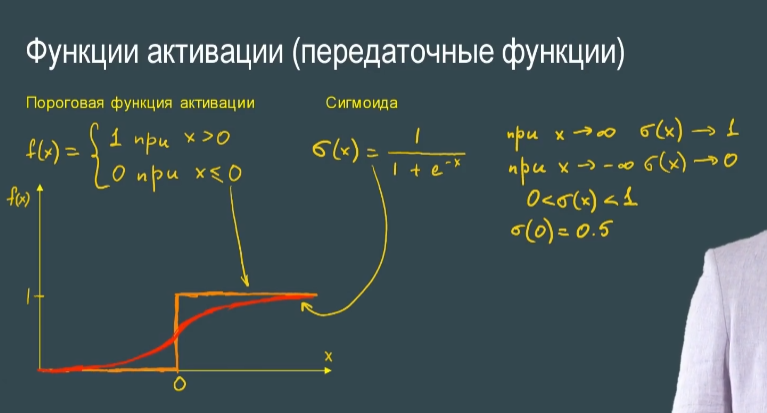 Функции активации (передаточные функции)
Пороговая функция активации
f(x) = { 1 при x > 0
0 при x ≤ 0
Сигмоида
σ(x) = 1 / (1 + e^-x)
при x → ∞ σ(x) → 1
при x → -∞ σ(x) → 0
0 < σ(x) < 1
σ(0) = 0.5
f(x)
1
x
0